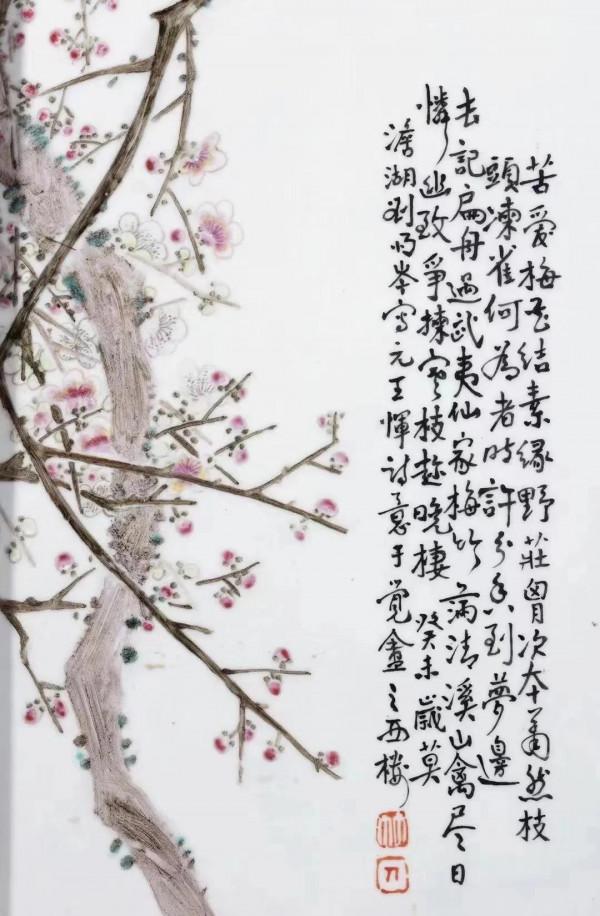 苦愛梅花結素緣野莊胷次夲蕭然枝
頭凍雀何為者時許分香到夢邊
去記扁舟過武夷仙家梅竹滿清溪山禽尽日
憐幽致爭揀寒枝趂晚棲 癸未歲莫
澹湖刘雨岑寫元王惲詩意于覺盦之西樓